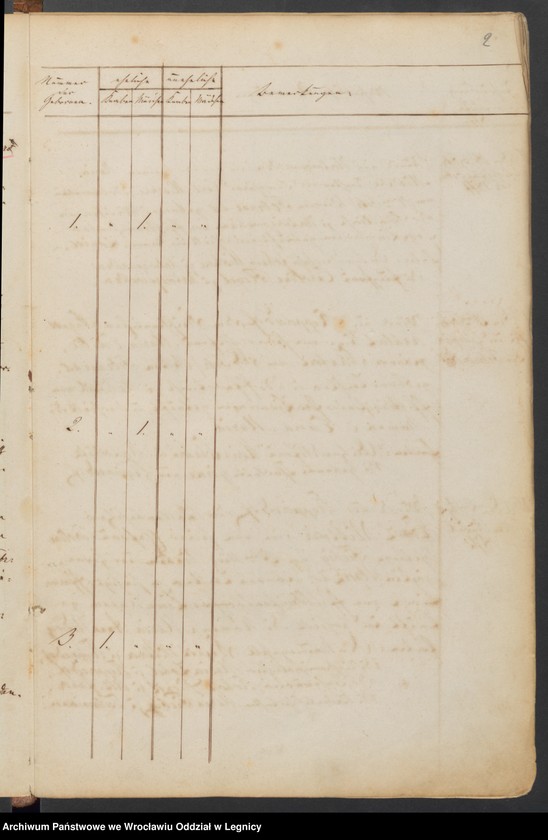 2
Nummer der Geborenen.
eheliche
uneheliche
Knaben Mädchen Knaben Mädchen
Bemerkungen.
1. " 1. " "
2. " 1. " "
3. 1. " " "
Archiwum Państwowe we Wrocławiu Oddział w Legnicy